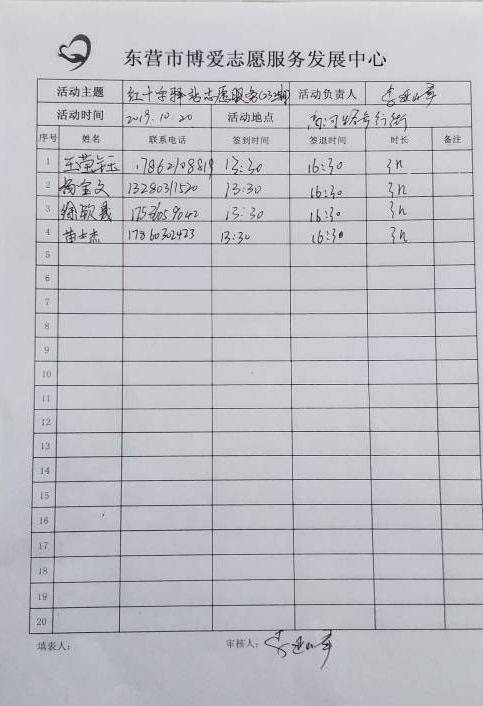 东营市博爱志愿服务发展中心
活动主题 红十字驿站志愿服务 活动负责人
活动时间 2019.10.20 活动地点 步行街
序号 姓名 联系电话 签到时间 签退时间 时长 备注
1 17862108819 13:30 16:30 3h
2 杨金文 13280311520 13:30 16:30 3h
3 13:30 16:30 3h
4 苗士杰 17860302423 13:30 16:30 3h
5
6
7
8
9
10
11
12
13
14
15
16
17
18
19
20
填表人： 审核人：